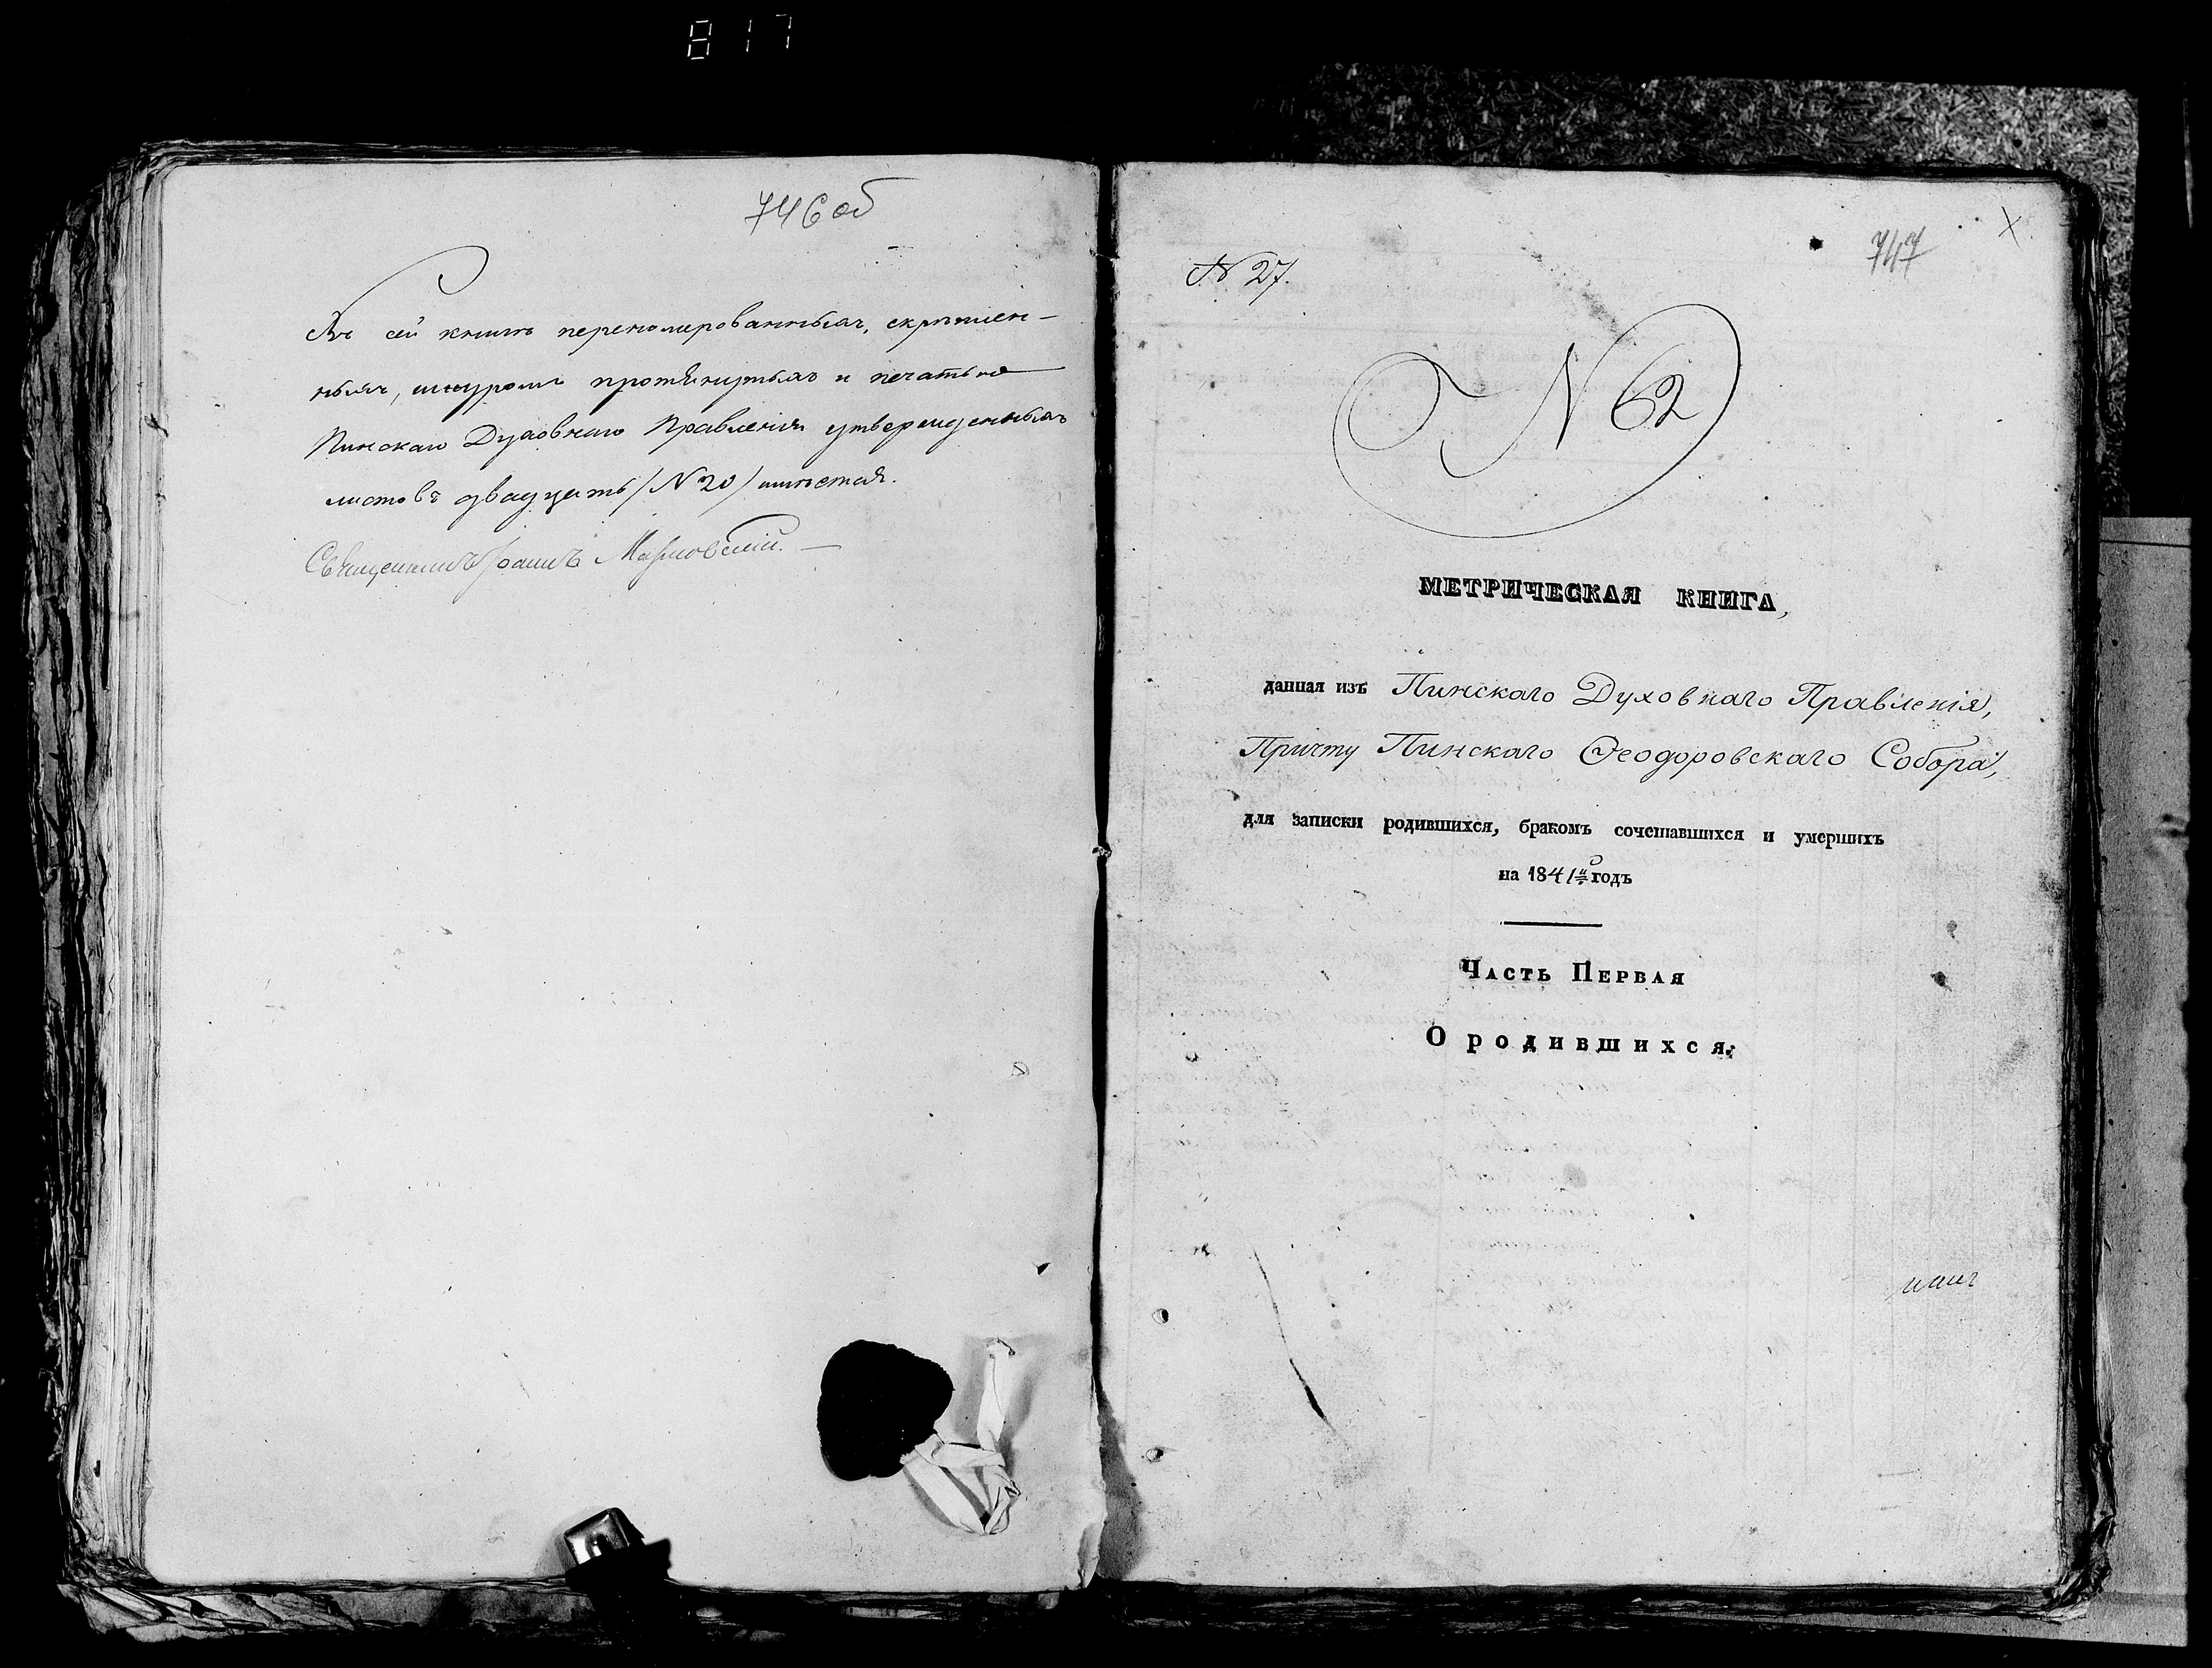 817
746 об
Въ сей книгѣ перенумерованныхъ, скрѣплен-
ныхъ, шнуромъ протянутыхъ и печатью
Пинскаго Духовнаго Правленія утвержденныхъ
листовъ двадцать /№ 20/ имѣется.
Священникъ Іоаннъ
747
№ 27.
№ 62
МЕТРИЧЕСКАЯ КНИГА,
данная изъ Пинскаго Духовнаго Правленія,
Причту Пинскаго Ѳеодоровскаго Собора,
для записки родившихся, бракомъ сочетавшихся и умершихъ
на 1841й годъ
Часть Первая
О родившихся: